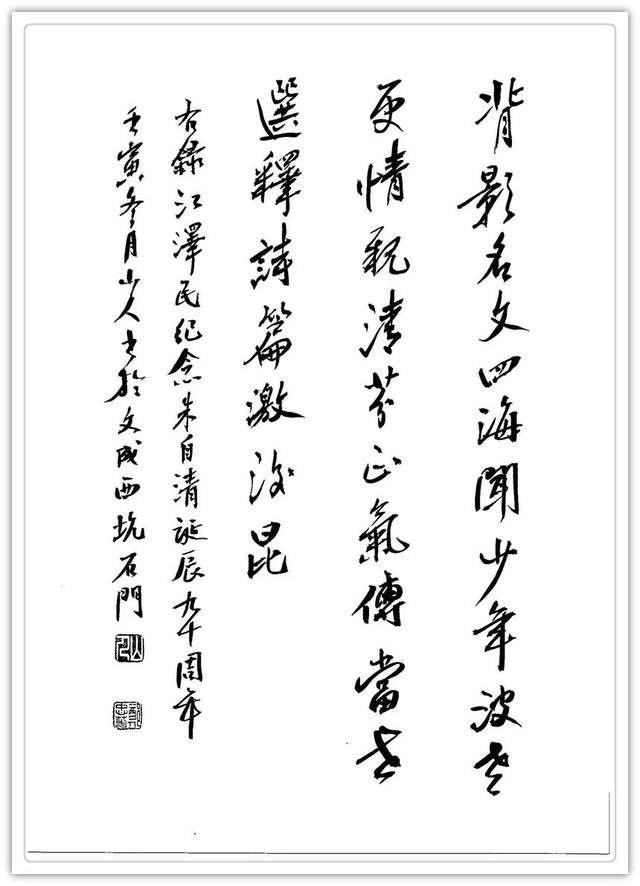 背影名文四海聞少年波老
更情親清芬正氣傳當世
選釋詩篇激後昆
右錄江澤民紀念朱自清誕辰九十周年
壬寅冬月山人書於文成西坑石門